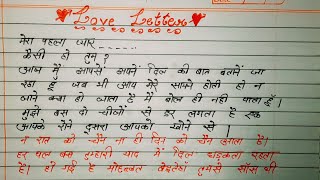 Love Letter
मेरा पहला प्यार ------
कैसी हो तुम ?
आज मैं आपसे अपने दिल की बात बताने जा
रहा हूँ जब भी आप मेरे सामने होती हो न
जाने क्या हो जाता है मैं बोल ही नहीं पाता हूँ।
मुझे बस दो चीजों से डर लगता है एक
आपके रोने दूसरा आपको खोने से ।
न रात को चैन ना ही दिन को चैन आता है।
हर पल बस तुम्हारी याद में दिल धड़कता रहता
है। हो गई है मोहब्बत बेइंतहा तुमसे सांस भी